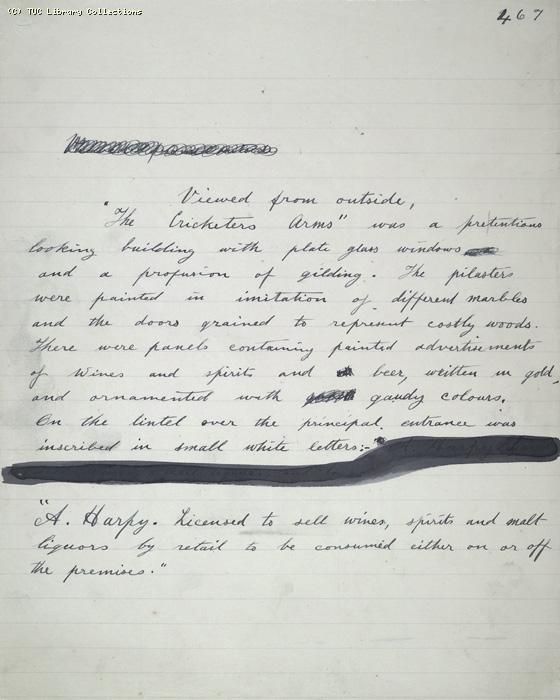 (C) TUC Library Collections
467
Viewed from outside,
"The Cricketers Arms" was a pretentious
looking building with plate glass windows
and a profusion of gilding. The pilasters
were painted in imitation of different marbles
and the doors grained to represent costly woods.
There were panels containing painted advertisements
of wines and spirits and beer, written in gold
and ornamented with gaudy colours.
On the lintel over the principal entrance was
inscribed in small white letters:-
"A. Harpy. Licensed to sell wines, spirits and malt
liquors by retail to be consumed either on or off
the premises."